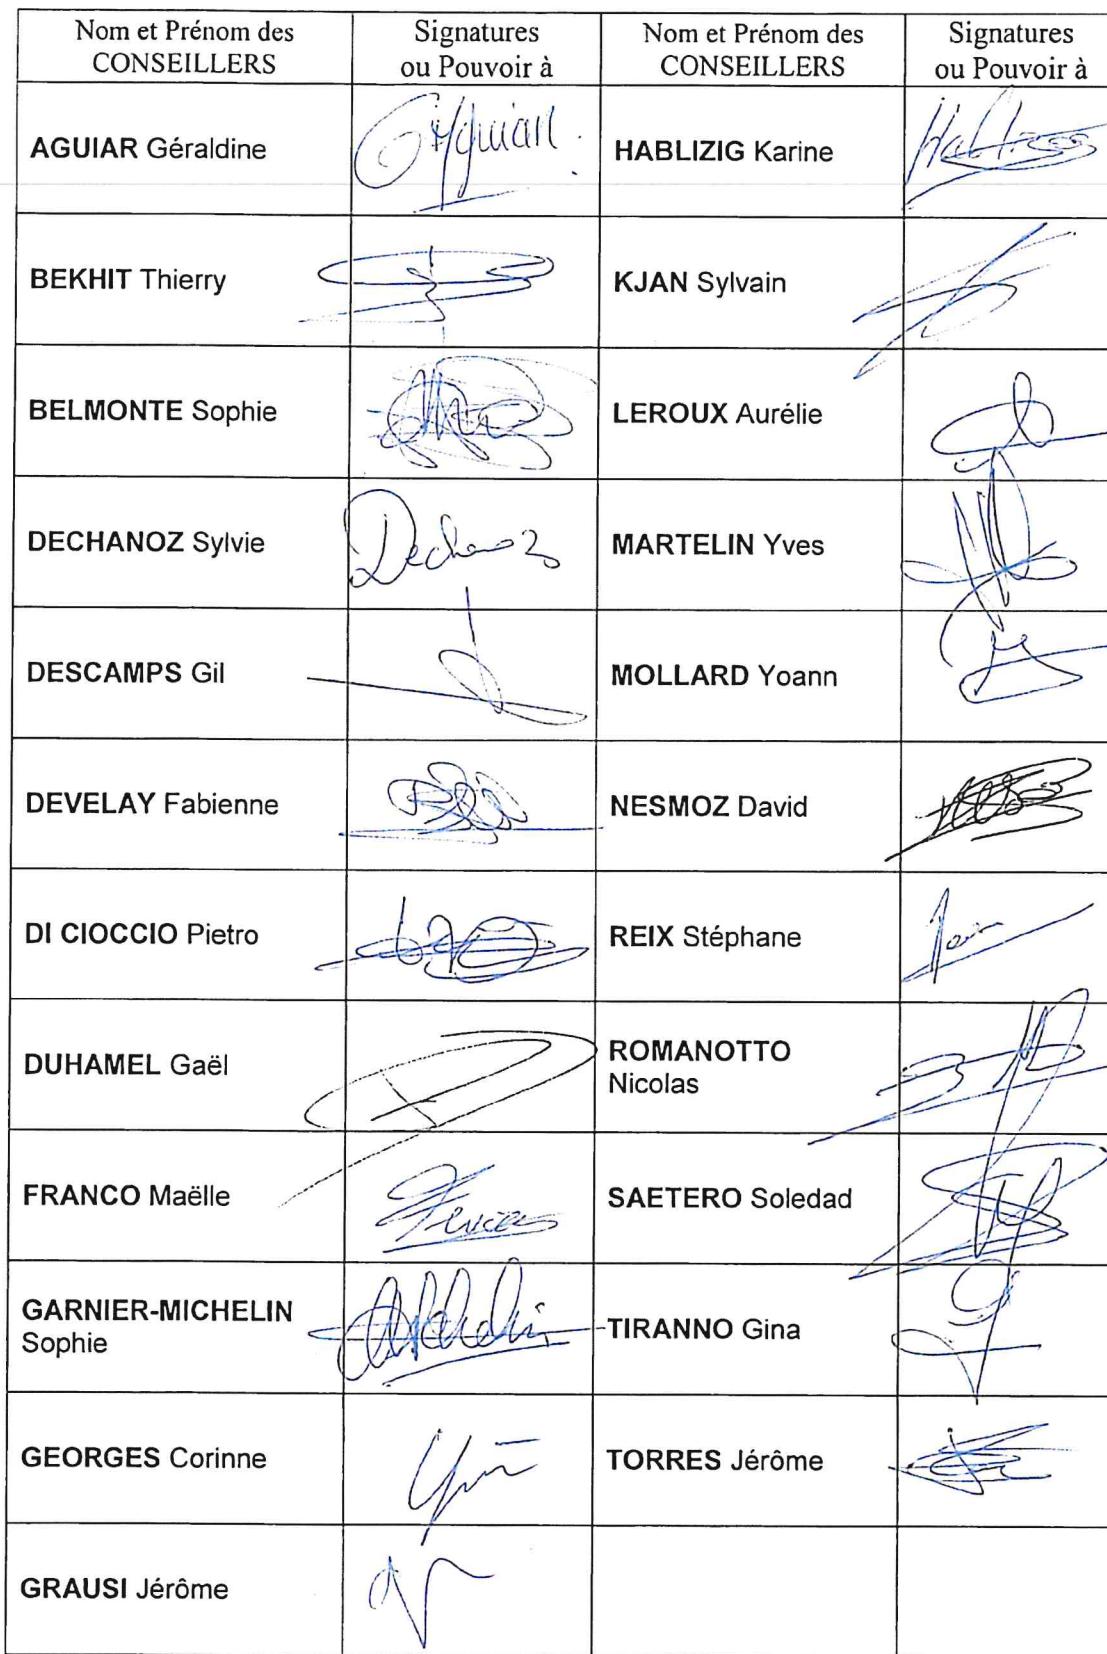 Nom et Prénom des
CONSEILLERS
Signatures
ou Pouvoir à
Nom et Prénom des
CONSEILLERS
Signatures
ou Pouvoir à
AGUIAR Géraldine
HABLIZIG Karine
BEKHIT Thierry
KJAN Sylvain
BELMONTE Sophie
LEROUX Aurélie
DECHANOZ Sylvie
Dechanoz
MARTELIN Yves
DESCAMPS Gil
MOLLARD Yoann
DEVELAY Fabienne
NESMOZ David
DI CIOCCIO Pietro
REIX Stéphane
DUHAMEL Gaël
ROMANOTTO
Nicolas
FRANCO Maëlle
SAETERO Soledad
GARNIER-MICHELIN
Sophie
TIRANNO Gina
GEORGES Corinne
TORRES Jérôme
GRAUSI Jérôme